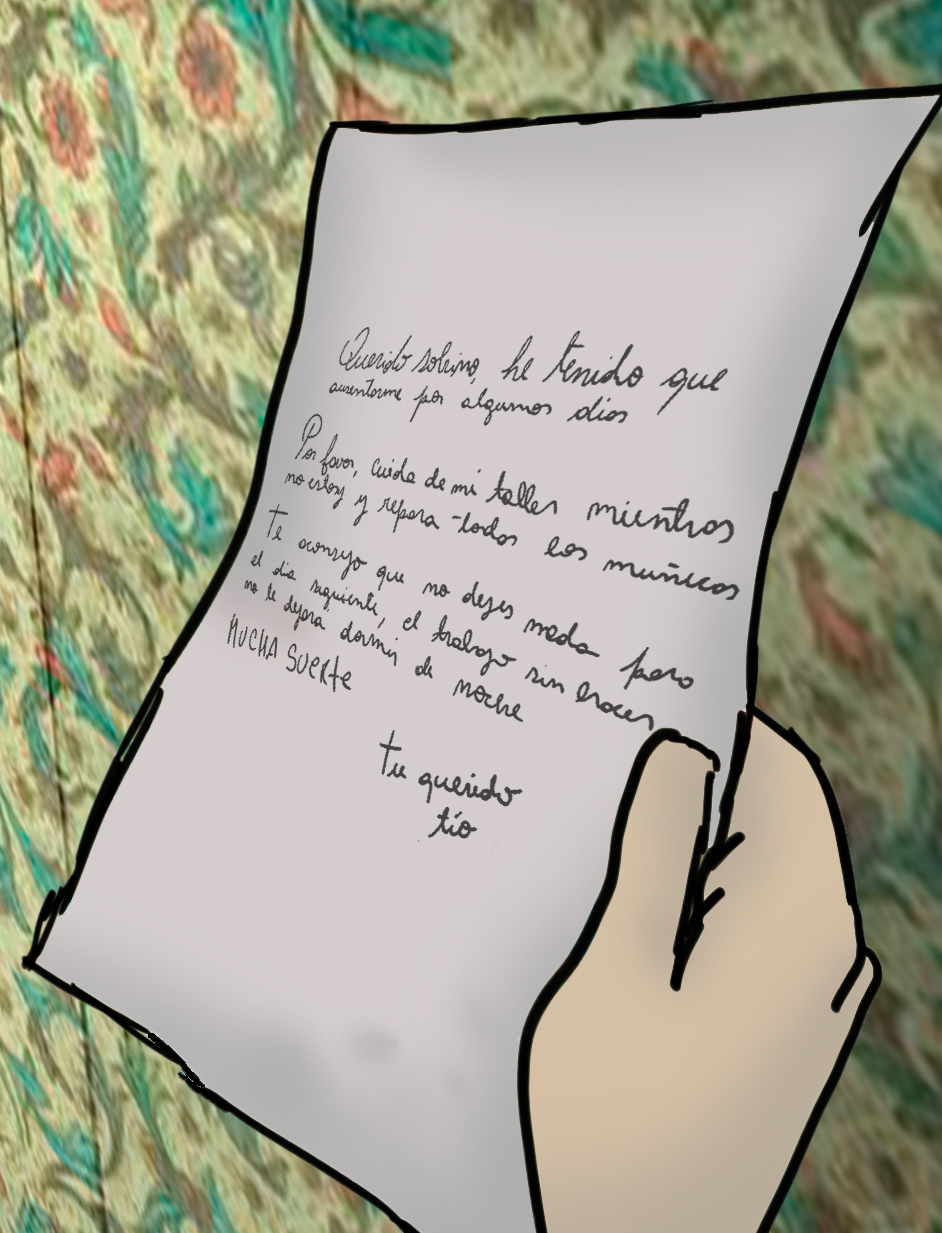 Querido sobrino, he tenido que
ausentarme por algunos días
Por favor, cuida de mi taller mientras
no estoy y repara todos los muñecos
Te aconsejo que no dejes nada para
el día siguiente, el trabajo sin hacer
no te dejara dormir de noche
MUCHA SUERTE
tu querido
tío